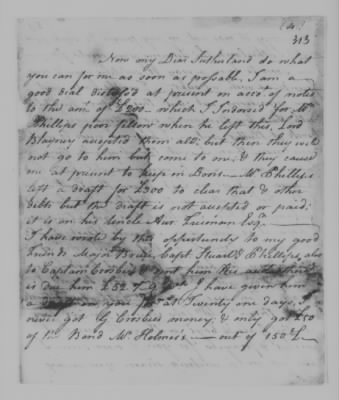 (4)
313
Now my Dear Sutherland do what
you can for me as soon as possable, I am a
good deal distresed at present on acct. of notes
to the amt. of £200 — which I Indorsed for Mr
Phillips poor fellow when he left this, Lord
Blayney accepted them all; but then they will
not go to him but come to me, & they cause
me at present to keep in Doors — Mr Phillips
left a draft for £300 to clear that & other
debts but the draft is not accepted or paid:
it is on his Uncle Freeman Esqr.
I have wrote by this oppertunity to my good
friends Major Bruce, Capt. Stuart & Phillips, also
to Captain Crosbie & sent him his
is due him £52 I have given him
a on you at Twenty one days, I
never got Crosbies money, & only got £50
of the Bond Mr Holmes's — out of 150£ —